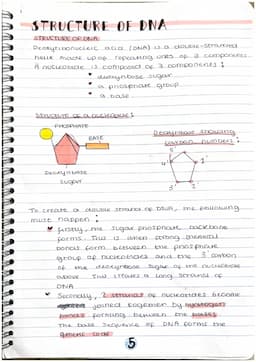 STRUCTURE OF DNA
STRUCTURE OF DNA
Deoxyribonucleic acid (DNA) is a double-stranded
helix made up of repeating units of 3 components.
A nucleotide is composed of 3 components:
deoxyribose sugar
a phosphate group
a base
STRUCTURE OF A nucleotide:
PHOSPHATE
BASE
Deoxyribose
sugar
Deoxyribose showing
carbon numbers:
5'
4'
1'
3'
2'
To create a double strand of DNA, the following
must happen:
firstly, the sugar phosphate backbone
forms. This is when strong chemical
bonds form between the phosphate
group of nucleotides and the 3' carbon
of the deoxyribose sugar of the nucleotide
above. This creates a long strand of
DNA
Secondly, 2 strands of nucleotides become
joined together by hydrogen
bonds forming between the bases
The base sequence of DNA forms the
genetic code
5